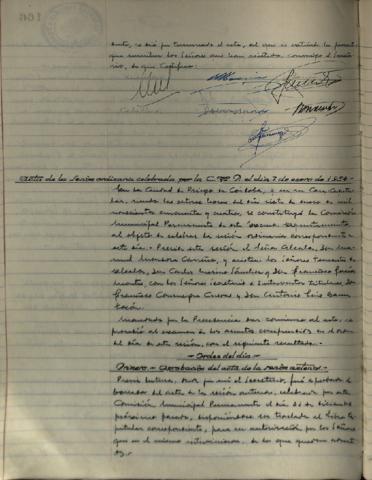 166
sunto, se dió por terminado el acto, del que se extiende la presente
que suscriben los Señores que han asistido, conmigo el Secreta-
rio, de que Certifico.
Acta de la sesión ordinaria celebrada por la C.M.P. el día 7 de enero de 1.954.-
En la Ciudad de Priego de Córdoba, y en su Casa Capitu-
lar, siendo las horas del día siete de enero de mil
novecientos cincuenta y cuatro, se constituyó la Comisión
Municipal Permanente de este
al objeto de celebrar la sesión ordinaria correspondiente a
este día. Preside esta sesión el Señor Alcalde, Don Ma-
nuel Mendoza Carreño, y asisten los Señores Tenientes de
Alcalde, Don Carlos Sánchez y Don Francisco García
con los Señores Secretario e Interventor
Francisco Consuegra Cuevas y Don Antonio Luis Baena
Tocón.
por la Presidencia dar comienzo al acto, se
procedió al examen de los asuntos comprendidos en el orden
del día de esta sesión, con el siguiente resultado.
Orden del día
Primero.- Aprobación del acta de la sesión anterior.
Previa lectura, dada por mí el Secretario, fué aprobado el
borrador del acta de la sesión anterior, celebrada por esta
Comisión Municipal Permanente el día 31 de Diciembre
próximo pasado, disponiéndose su traslado al Libro Ca-
pitular correspondiente, para su autorización por los Señores
que en el mismo intervinieron, de lo que quedan